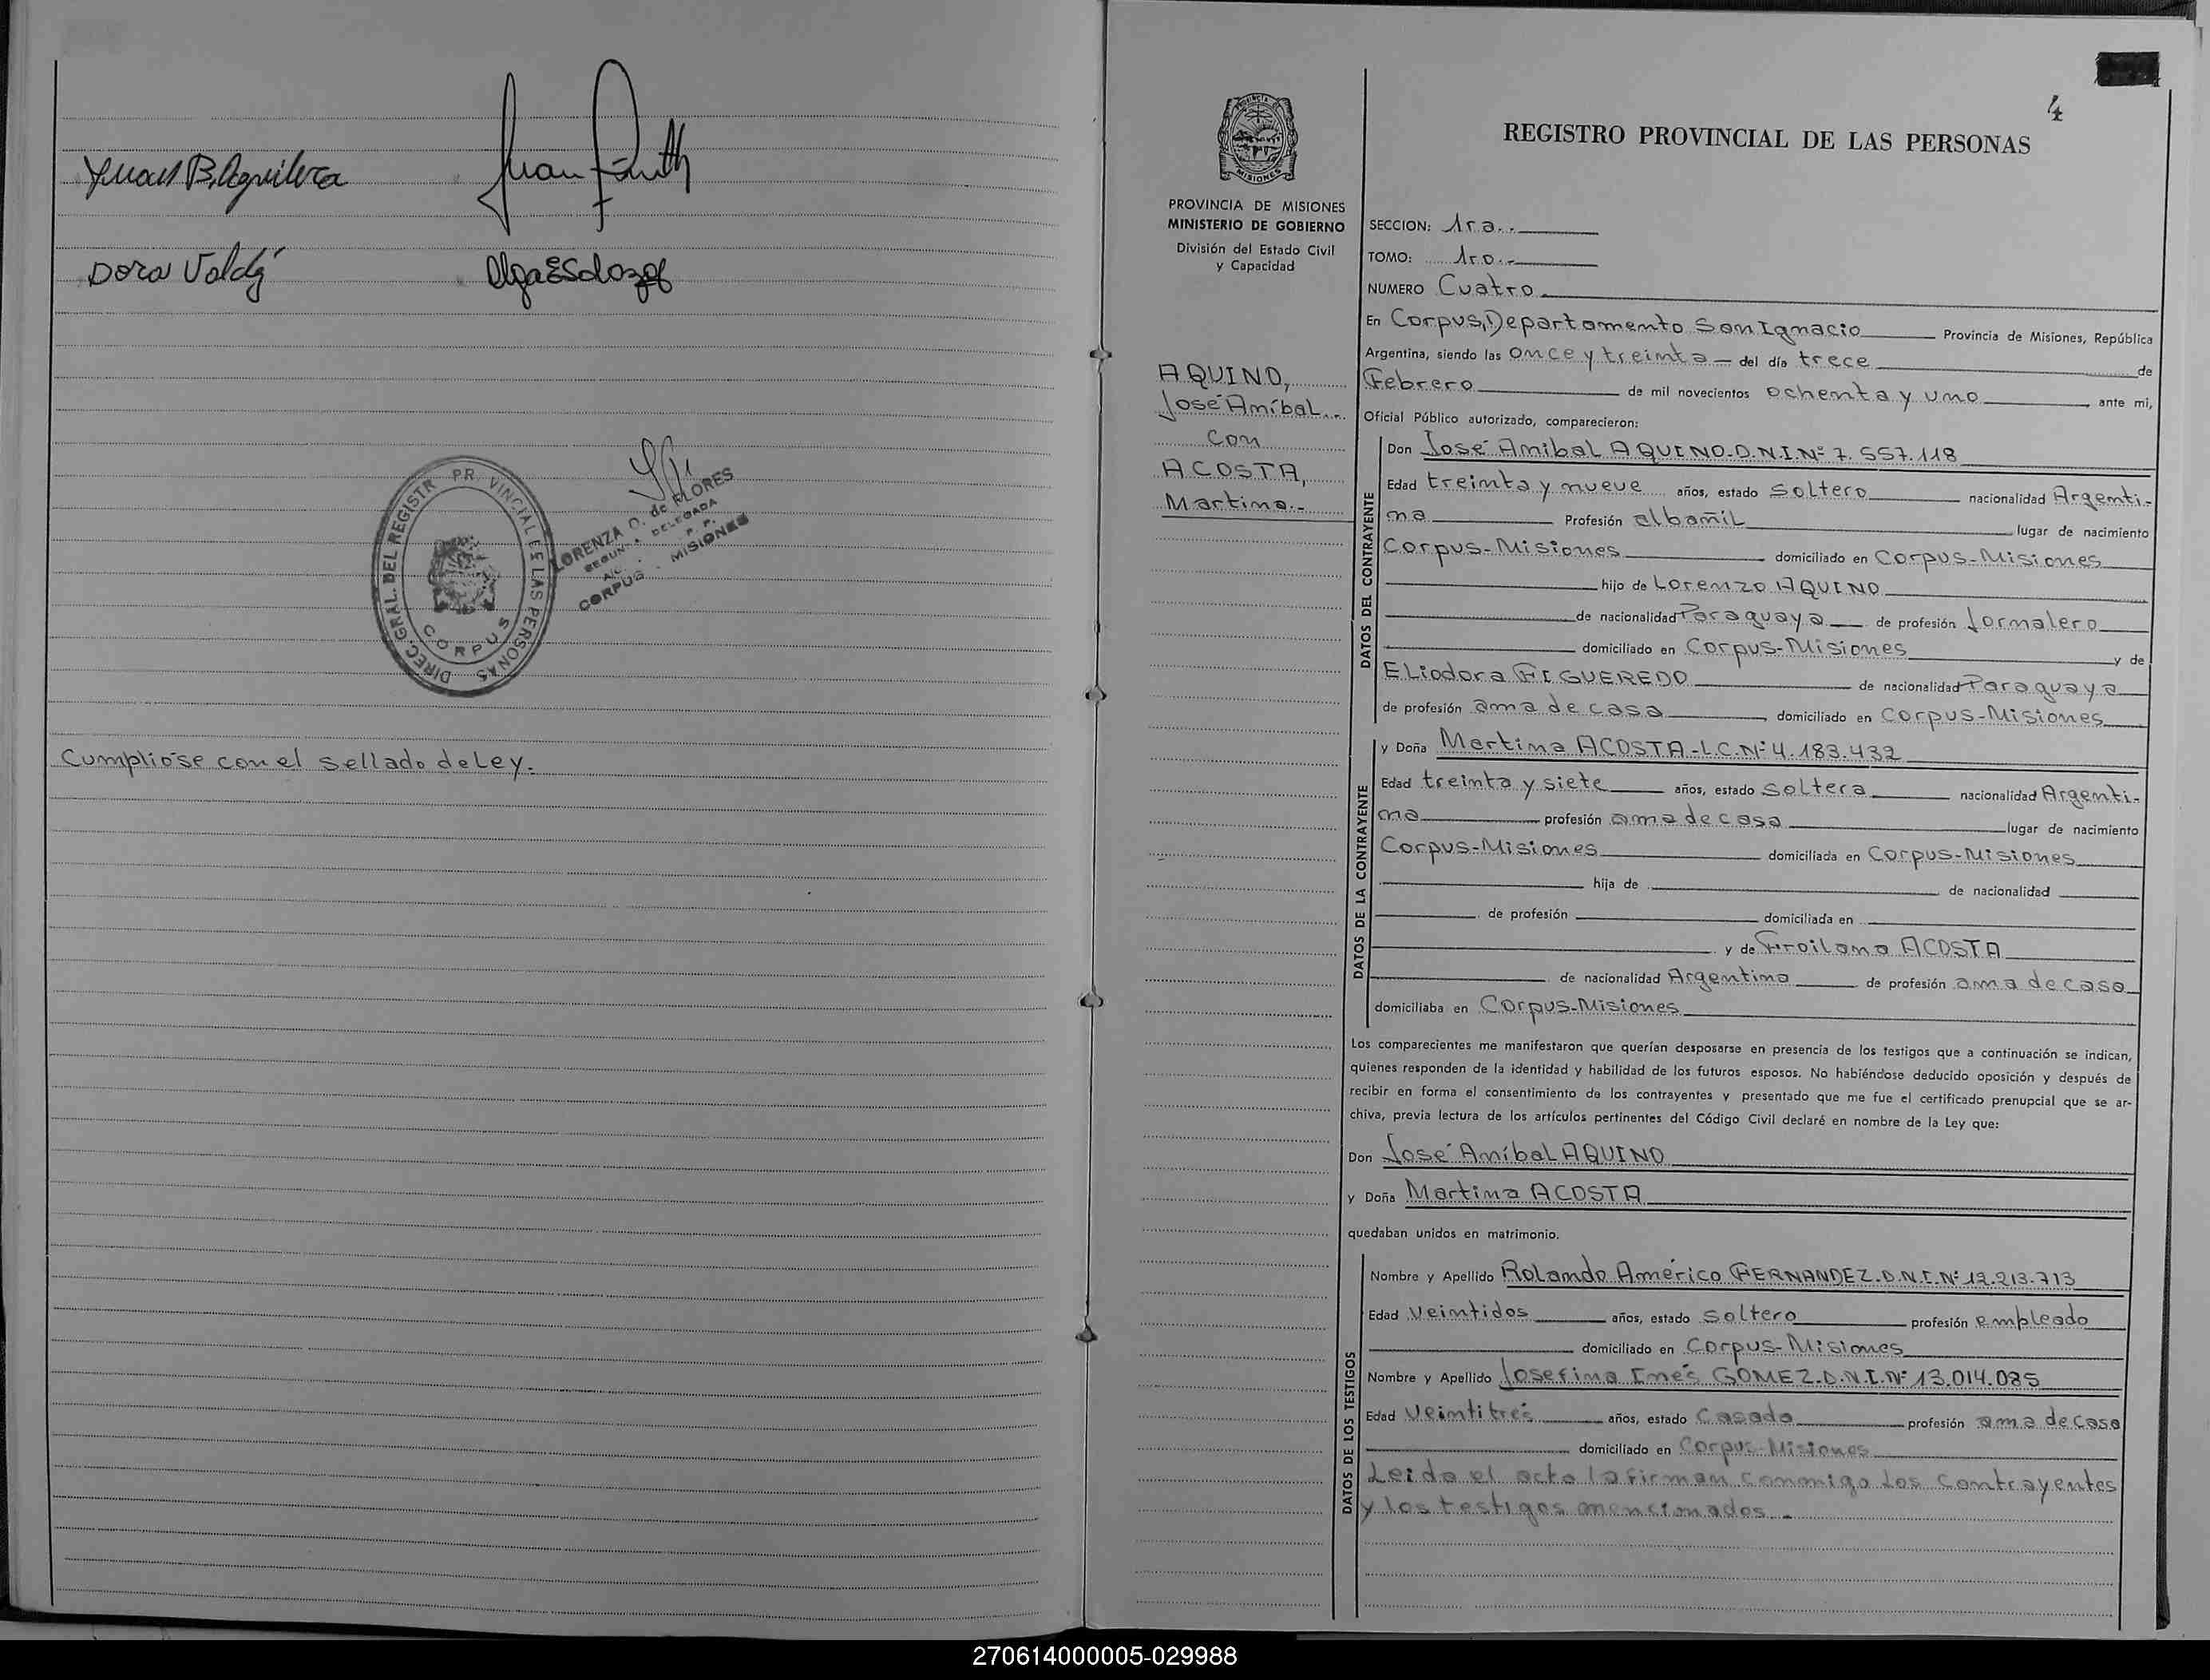 Juan
Dora
Cumplióse con el sellado de Ley.
DIREC. GRAL. DEL REGISTR PR VINCIAL E LAS PERSONAS
CORPUS
LORENZA O. de FLORES
DELEGADA
CORPUS - MISIONES
4
REGISTRO PROVINCIAL DE LAS PERSONAS
PROVINCIA DE MISIONES
MINISTERIO DE GOBIERNO
División del Estado Civil
y Capacidad
SECCION: 1ra..
TOMO: 1ro..
NUMERO Cuatro
En Corpus, Departamento San Ignacio Provincia de Misiones, República
Argentina, siendo las once y treinta del día trece de
Febrero de mil novecientos ochenta y uno ante mi,
Oficial Público autorizado, comparecieron:
AQUINO,
José Aníbal..
con
ACOSTA,
Martina.-
DATOS DEL CONTRAYENTE
Don José Anibal AQUINO-D.N.I.Nº 7.557.118
Edad treinta y nueve años, estado soltero nacionalidad Argenti-
na Profesión albañil lugar de nacimiento
Corpus-Misiones domiciliado en Corpus-Misiones
hijo de Lorenzo AQUINO
de nacionalidad Paraguaya de profesión Jornalero
domiciliado en Corpus-Misiones y de
Eliodora FIGUEREDO de nacionalidad Paraguaya
de profesión ama de casa domiciliado en Corpus-Misiones
DATOS DE LA CONTRAYENTE
y Doña Martina ACOSTA-L.C.Nº 4.183.432
Edad treinta y siete años, estado soltera nacionalidad Argenti-
na profesión ama de casa lugar de nacimiento
Corpus-Misiones domiciliada en Corpus-Misiones
hija de de nacionalidad
de profesión domiciliada en
y de Froilana ACOSTA
de nacionalidad Argentina de profesión ama de casa
domiciliaba en Corpus-Misiones
Los comparecientes me manifestaron que querían desposarse en presencia de los testigos que a continuación se indican,
quienes responden de la identidad y habilidad de los futuros esposos. No habiéndose deducido oposición y después de
recibir en forma el consentimiento de los contrayentes y presentado que me fue el certificado prenupcial que se ar-
chiva, previa lectura de los artículos pertinentes del Código Civil declaré en nombre de la Ley que:
Don José Aníbal AQUINO
y Doña Martina ACOSTA
quedaban unidos en matrimonio.
DATOS DE LOS TESTIGOS
Nombre y Apellido Rolando Américo FERNANDEZ-D.N.I.Nº 12.213.713
Edad veintidos años, estado soltero profesión empleado
domiciliado en Corpus-Misiones
Nombre y Apellido Josefina Inés GOMEZ-D.N.I.Nº 13.014.085
Edad veintitrés años, estado casada profesión ama de casa
domiciliado en Corpus-Misiones
Leida el acta la firman conmigo los contrayentes
y los testigos mencionados.-
270614000005-029988